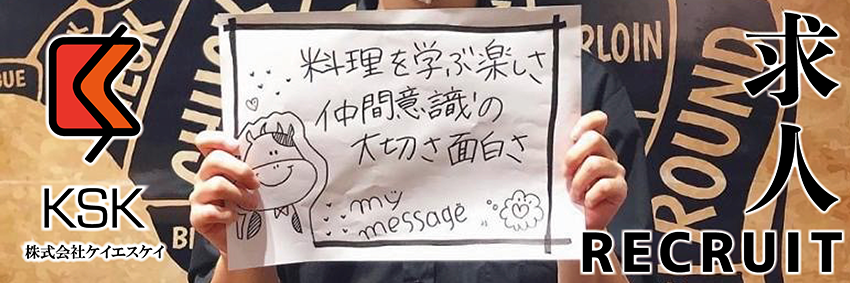 KSK
株式会社ケイエスケイ
料理を学ぶ楽しさ
仲間意識の
大切さ面白さ
my
message
求人
RECRUIT
CHUCK
RLOIN
ROUND